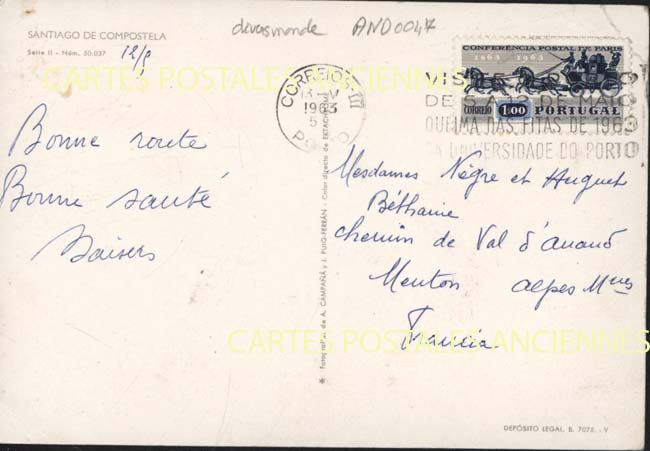 SANTIAGO DE COMPOSTELA
Serie II - Núm. 50.037
12/9
AND0047
CARTES POSTALES ANCIENNES
CONFERÊNCIA POSTAL DE PARIS
1863 1963
CORREIO 1$00 PORTUGAL
CORREIOS
1963
DE 5 A 12 DE MAIO
QUEIMA DAS FITAS DE 1963
DA UNIVERSIDADE DO PORTO
Bonne route
Bonne santé
Baisers
Fotografías de A. CAMPAÑÁ y J. PUIG-FERRÁN - Color directo de EKTACHROME
Mesdames Nègre et Huguet
Béthanie
chemin de Val d'Anaud
Menton Alpes Mmes
Francia
CARTES POSTALES ANCIENNES
DEPÓSITO LEGAL, B. 7075. - V